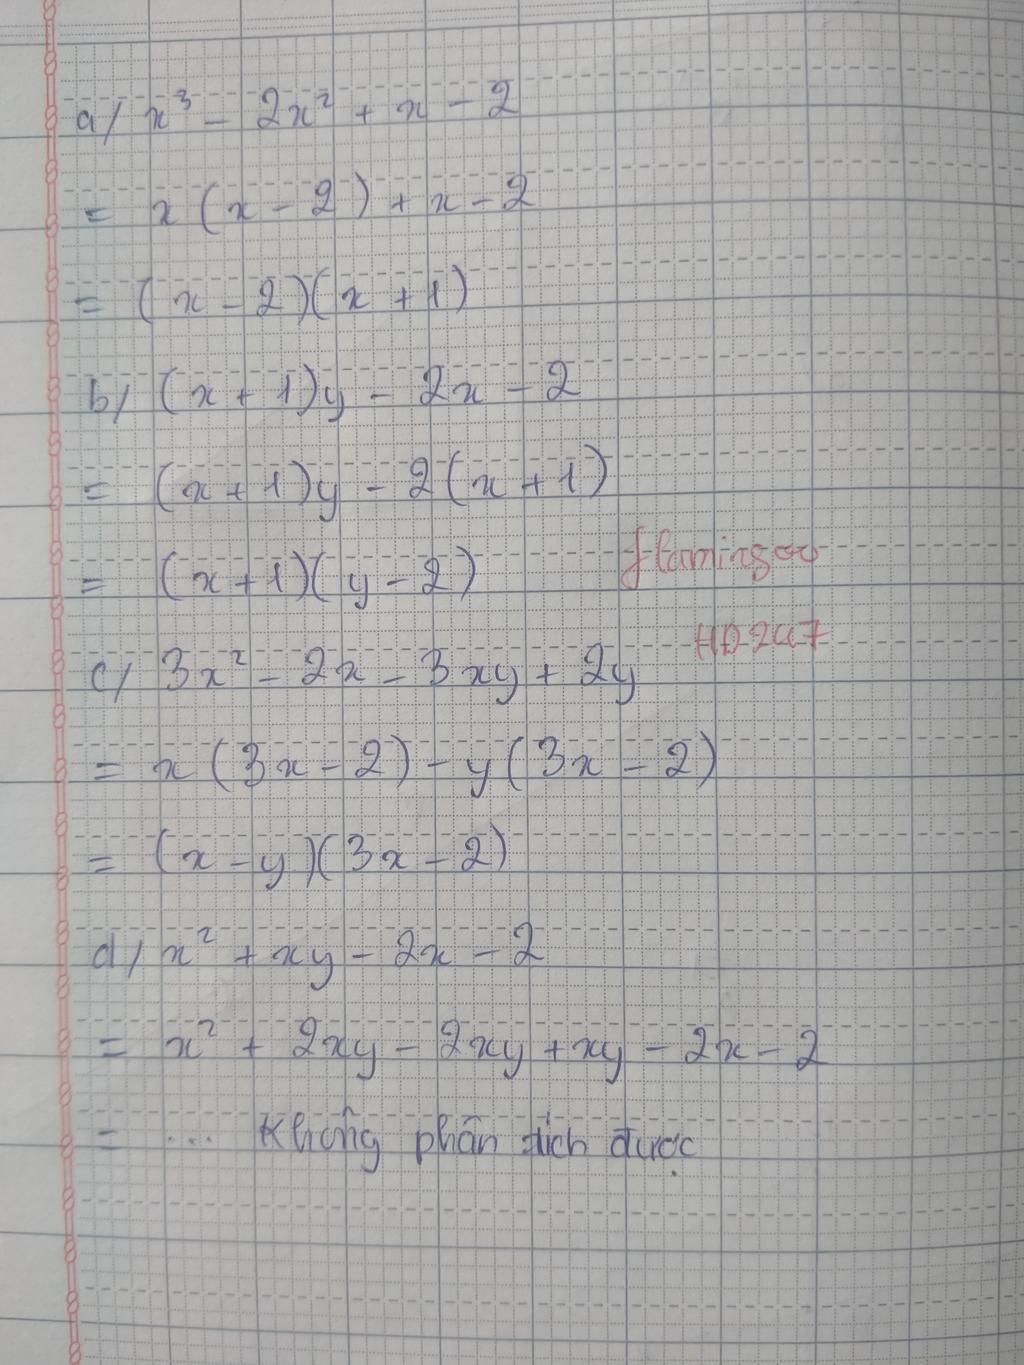 a/ x³ - 2x² + x - 2
= x(x - 2) + x - 2
= (x - 2)(x + 1)
b/ (x + 1)y - 2x - 2
= (x + 1)y - 2(x + 1)
= (x + 1)(y - 2)
flamingoo
HD2a7
c/ 3x² - 2x - 3xy + 2y
= x(3x - 2) - y(3x - 2)
= (x - y)(3x - 2)
d/ x² + xy - 2x - 2
= x² + 2xy - 2xy + xy - 2x - 2
= ... Không phân tích được